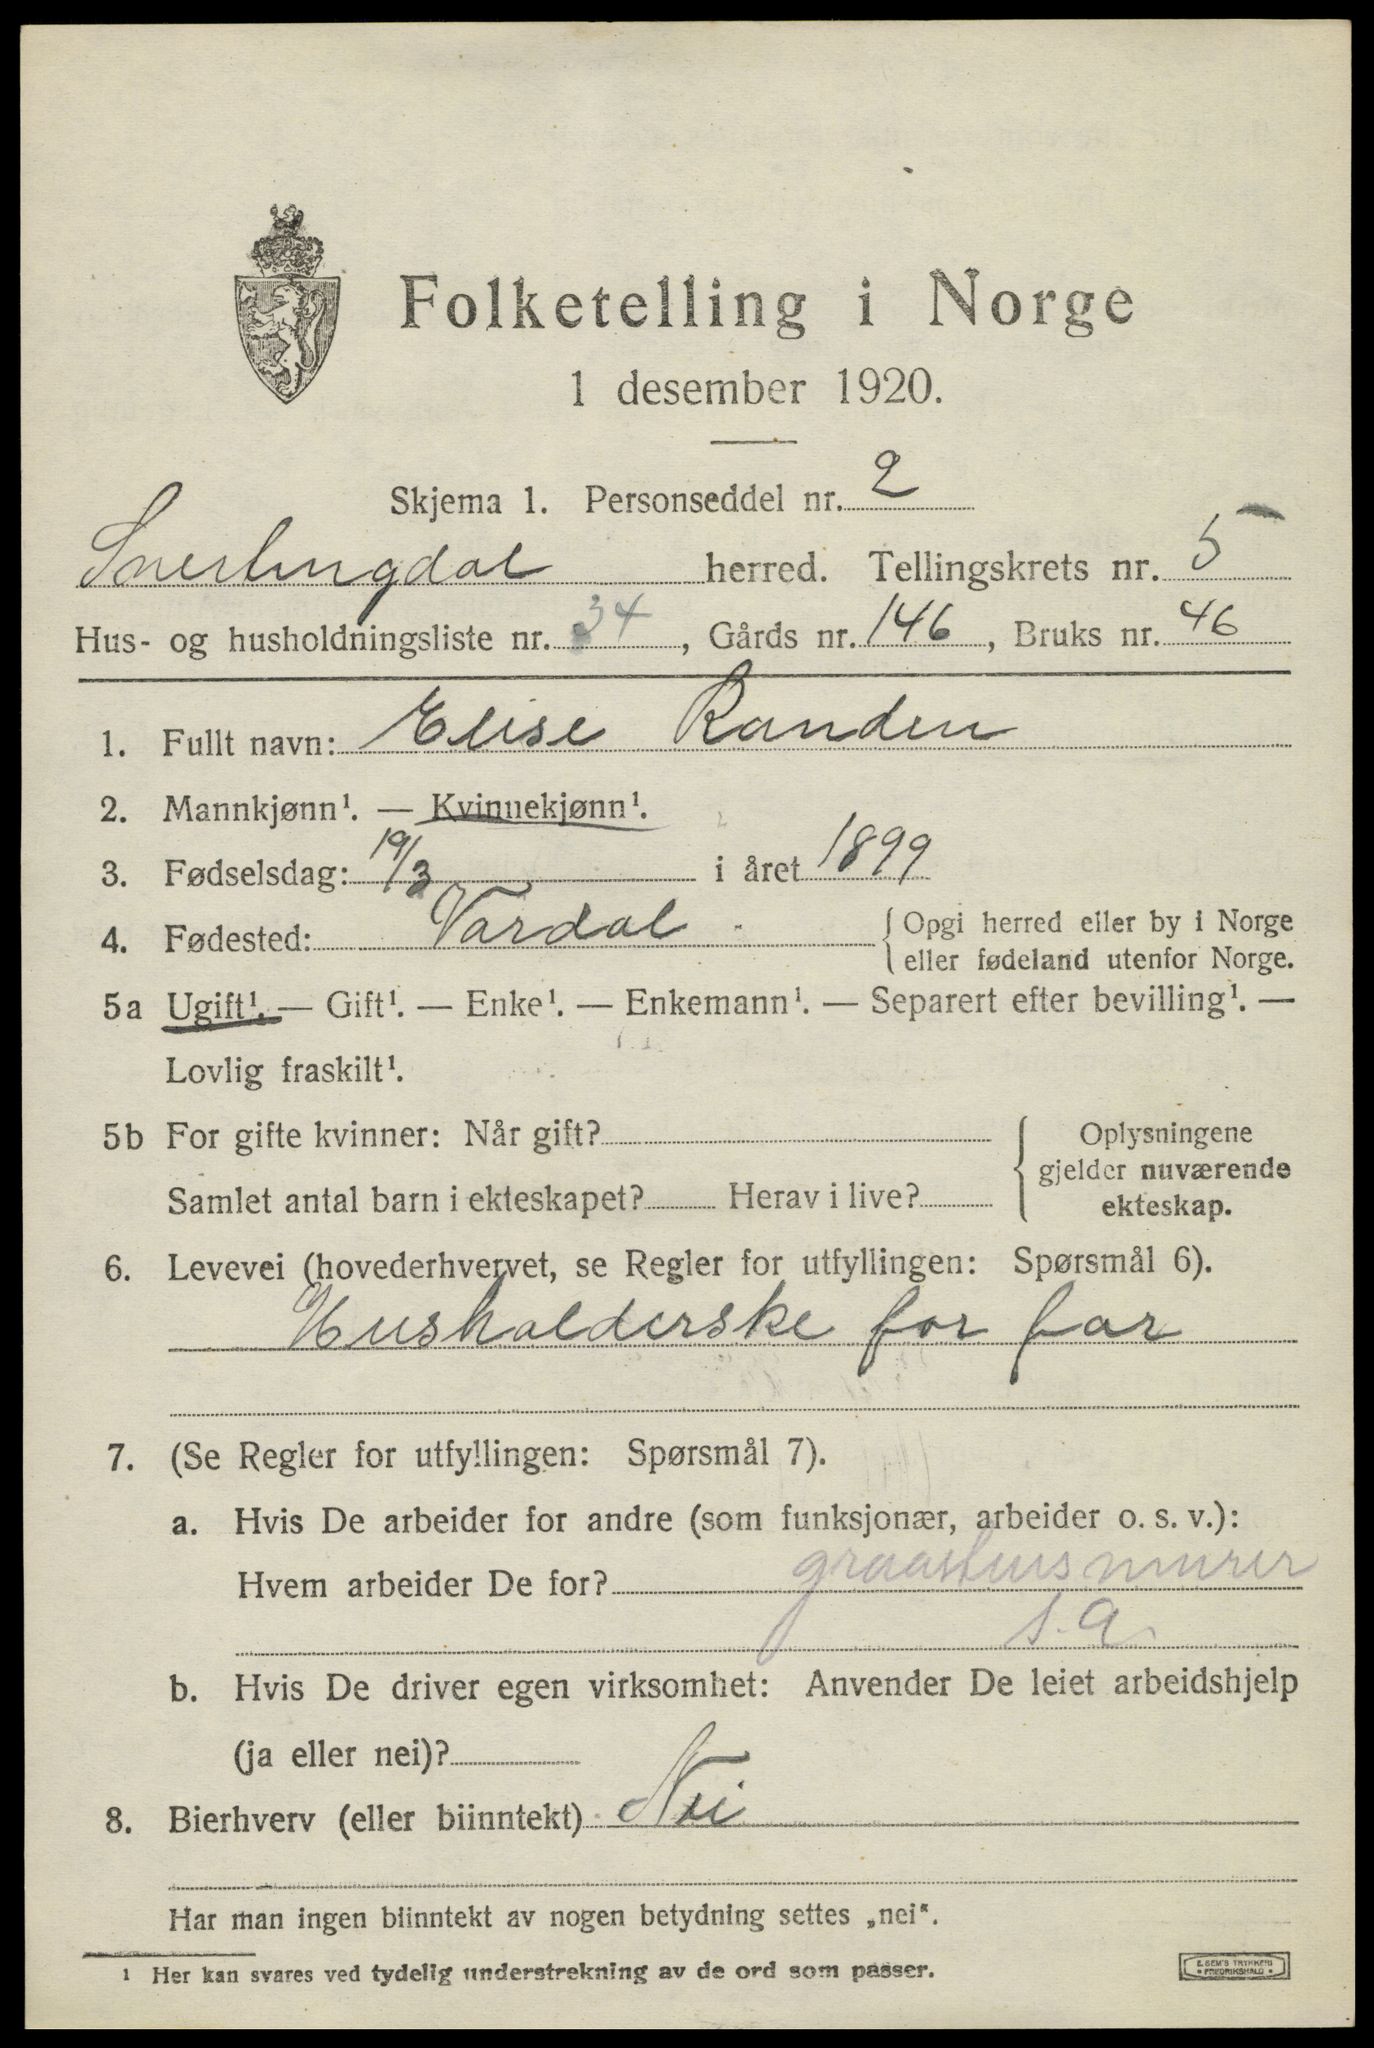 Folketelling i Norge
1 desember 1920.
Skjema 1. Personseddel nr. 2
Snertingdal herred. Tellingskrets nr. 5
Hus- og husholdningsliste nr. 34, Gårds nr. 146, Bruks nr. 46
1. Fullt navn: Elise Randen
2. Mannkjønn¹. — Kvinnekjønn¹.
3. Fødselsdag: 19/3 i året 1899
4. Fødested: Vardal. { Opgi herred eller by i Norge
eller fødeland utenfor Norge.
5a Ugift¹. — Gift¹. — Enke¹. — Enkemann¹. — Separert efter bevilling¹. —
Lovlig fraskilt¹.
5b For gifte kvinner: Når gift?
Samlet antal barn i ekteskapet? Herav i live?
{ Oplysningene
gjelder nuværende
ekteskap.
6. Levevei (hovederhvervet, se Regler for utfyllingen: Spørsmål 6).
Husholderske for far
7. (Se Regler for utfyllingen: Spørsmål 7).
a. Hvis De arbeider for andre (som funksjonær, arbeider o. s. v.):
Hvem arbeider De for? graastens murer
s. a.
b. Hvis De driver egen virksomhet: Anvender De leiet arbeidshjelp
(ja eller nei)?
8. Bierhverv (eller biinntekt) Nei
Har man ingen biinntekt av nogen betydning settes „nei“.
¹ Her kan svares ved tydelig understrekning av de ord som passer.
E. SEM'S TRYKKERI
• FREDRIKSHALD •